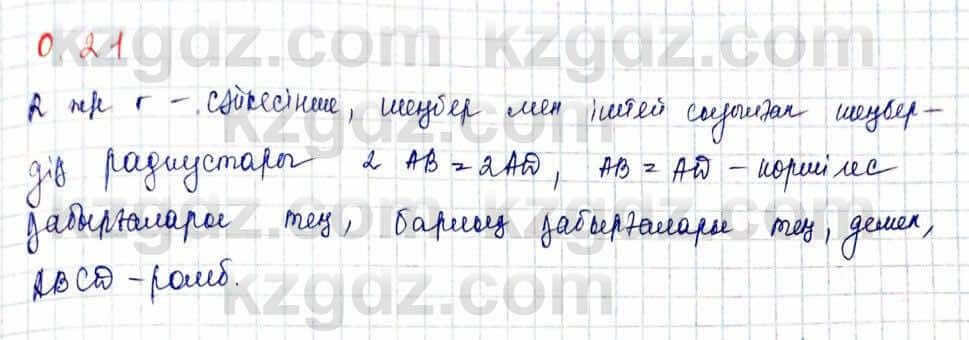 0.21
R пен r – сәйкесінше, шеңбер мен іштей сызылған шеңбер-
дің радиустары 2AB = 2AD, AB = AD – көршілес
қабырғалары тең, барлық қабырғалары тең, демек,
ABCD – ромб.
kzgdz.com kzgdz.com
kzgdz.com kzgdz.com
kzgdz.com kzgdz.com